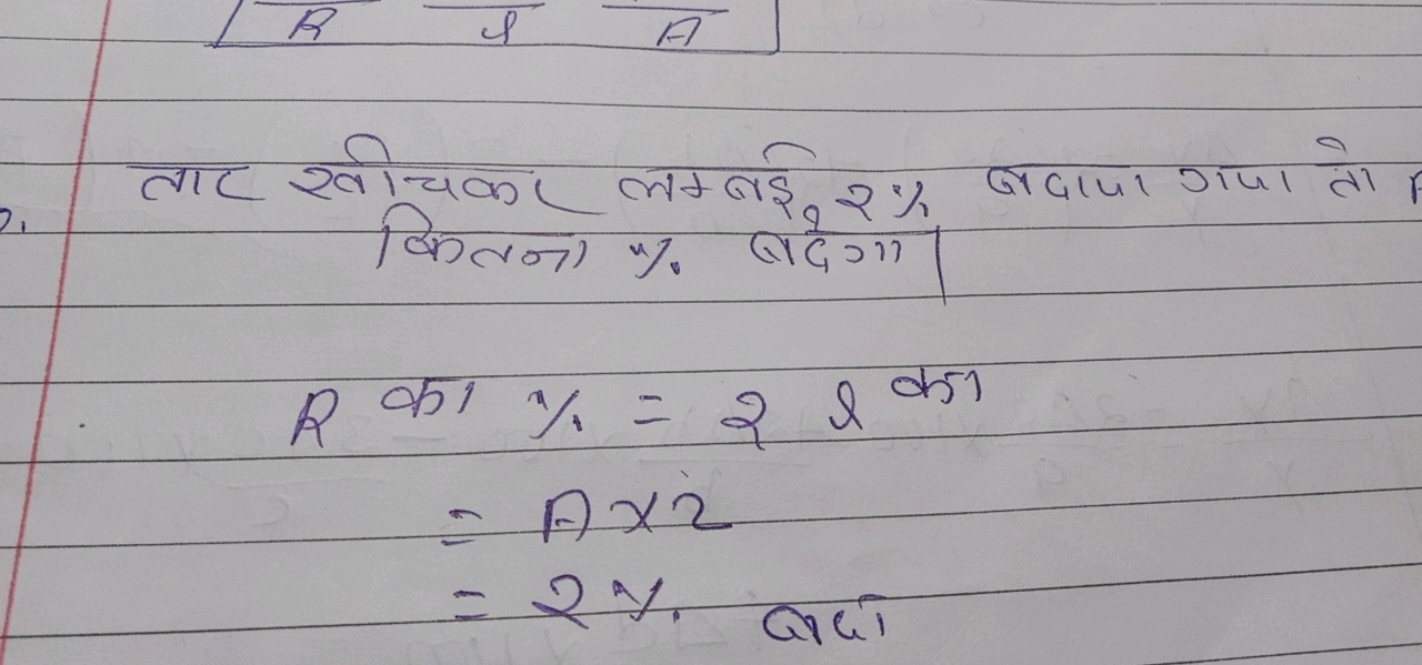 R l A
तार खीचकर लम्बई 2% बढाया गया तो R
कितना % बढेगा
R का % = 2 l का
= A x 2
= 2% बढा